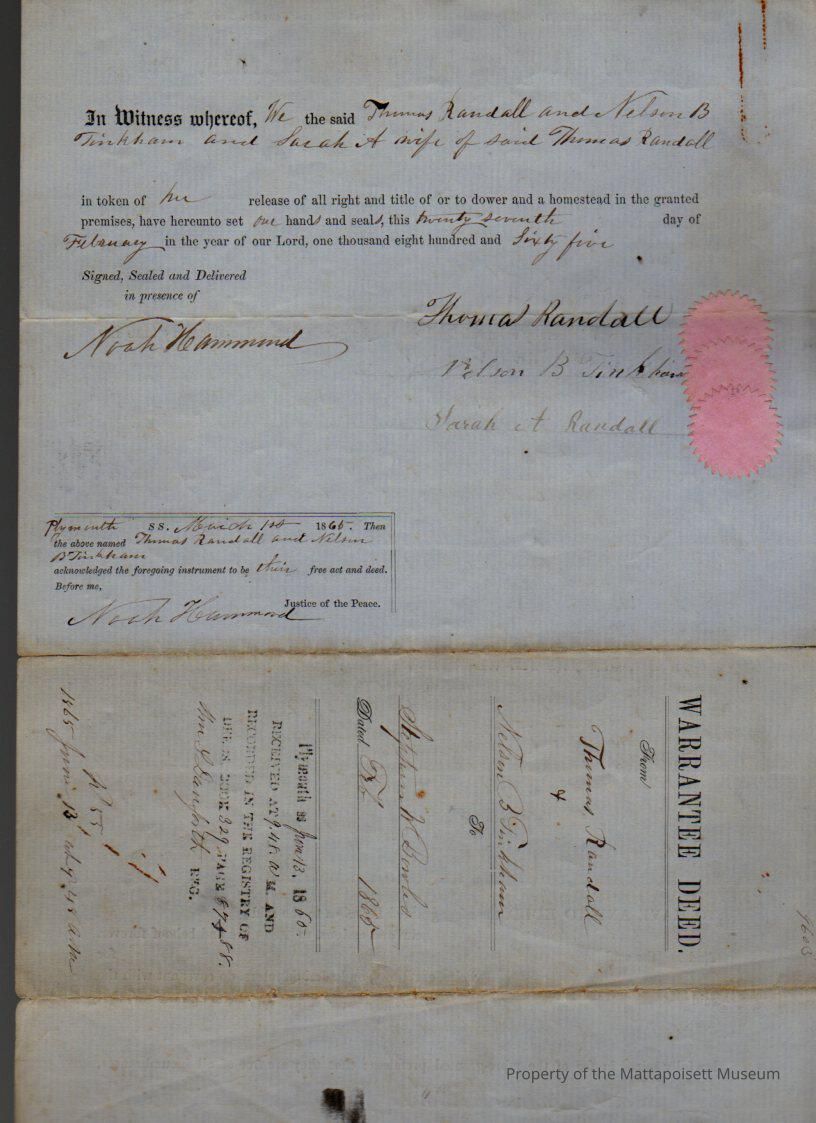 In Witness whereof, We the said Thomas Randall and Nelson B
Tinkham and Sarah A wife of said Thomas Randall
in token of her release of all right and title of or to dower and a homestead in the granted
premises, have hereunto set our hands and seals, this twenty seventh day of
February in the year of our Lord, one thousand eight hundred and Sixty five
Signed, Sealed and Delivered
in presence of
Noah Hammond
Thomas Randall
Nelson B Tinkham
Sarah A Randall
Plymouth SS. March 1st 1865. Then
the above named Thomas Randall and Nelson
B Tinkham
acknowledged the foregoing instrument to be their free act and deed.
Before me,
Justice of the Peace.
Noah Hammond
WARRANTEE DEED.
From
Thomas Randall
&
Nelson B Tinkham
To
Stephen W Bowles
Dated Feb 1865
Plymouth ss June 13, 1865.
RECEIVED AT 9.48. A M. AND
RECORDED IN THE REGISTRY OF
DEEDS BOOK 329 PAGE
Wm S Danforth REG.
1865 June 13 at 9.48 a m
Property of the Mattapoisett Museum